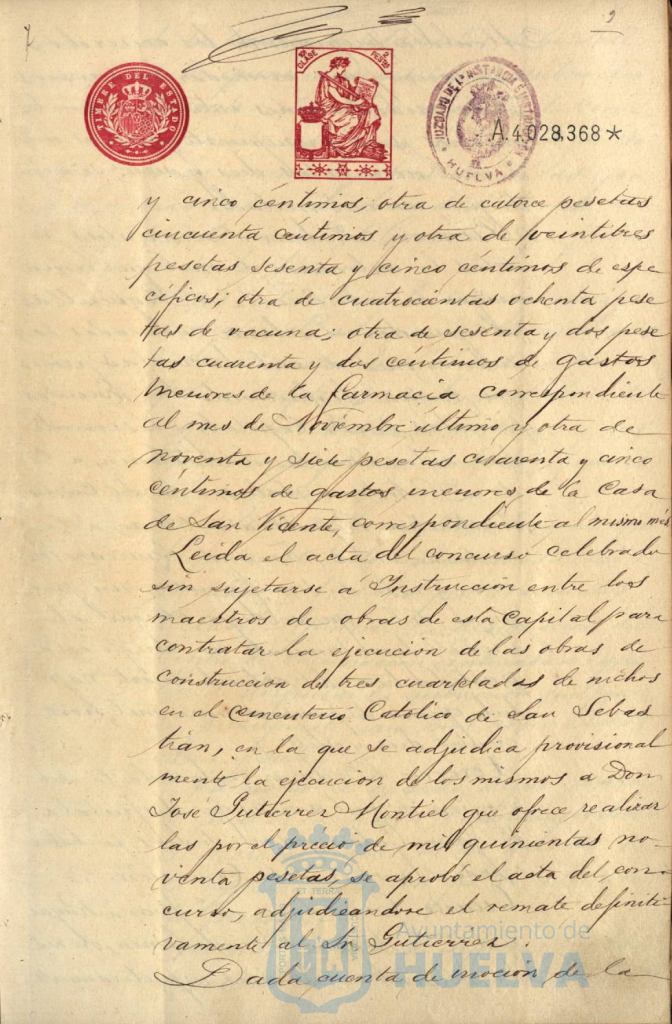 9
TIMBRE DEL ESTADO
CLASE 2 PESETAS
JUZGADO DE 1ª INSTANCIA E INSTRUCCION
HUELVA
A.4.028,368*
y cinco céntimos, otra de catorce pesetas
cincuenta céntimos y otra de veintitres
pesetas sesenta y cinco céntimos de espe
cificos; otra de cuatrocientas ochenta pese
tas de vacuna; otra de sesenta y dos pese
tas cuarenta y dos céntimos de gastos
menores de la farmacia correspondiente
al mes de Noviembre último y otra de
noventa y siete pesetas cuarenta y cinco
céntimos de gastos menores de la Casa
de San Vicente, correspondiente al mismo mes
Leida el acta del concurso celebrado
sin sujetarse á Instruccion entre los
maestros de obras de esta Capital para
contratar la ejecucion de las obras de
construccion de tres cuarteladas de nichos
en el Cementerio Católico de San Sebas
tián, en la que se adjudica provisional
mente la ejecucion de los mismos a Don
José Gutiérrez Montiel que ofrece realizar
las por el precio de mil quinientas no-
venta pesetas, se aprobó el acta del con-
curso, adjudicandose el remate definiti
vamente al Sr. Gutierrez.
Dada cuenta de mocion de la
Ayuntamiento de
HUELVA